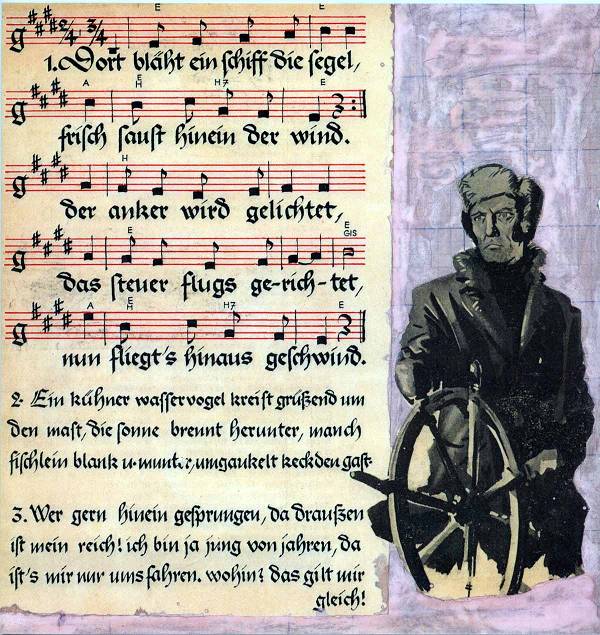 2/4, 3/4
E E
1. Dort bläht ein schiff die segel,
A E H H7 E
frisch saust hinein der wind.
H
der anker wird gelichtet,
E E GIS
das steuer flugs ge-rich-tet,
A E H H7 E
nun fliegt's hinaus geschwind.
2. Ein kühner wasservogel kreist grüßend um
den mast, die sonne brennt herunter, manch
fischlein blank u. munter, umgaukelt keck den gast.
3. Wer gern hinein gesprungen, da draußen
ist mein reich! ich bin ja jung von jahren, da
ist's mir nur ums fahren. wohin? das gilt mir
gleich!